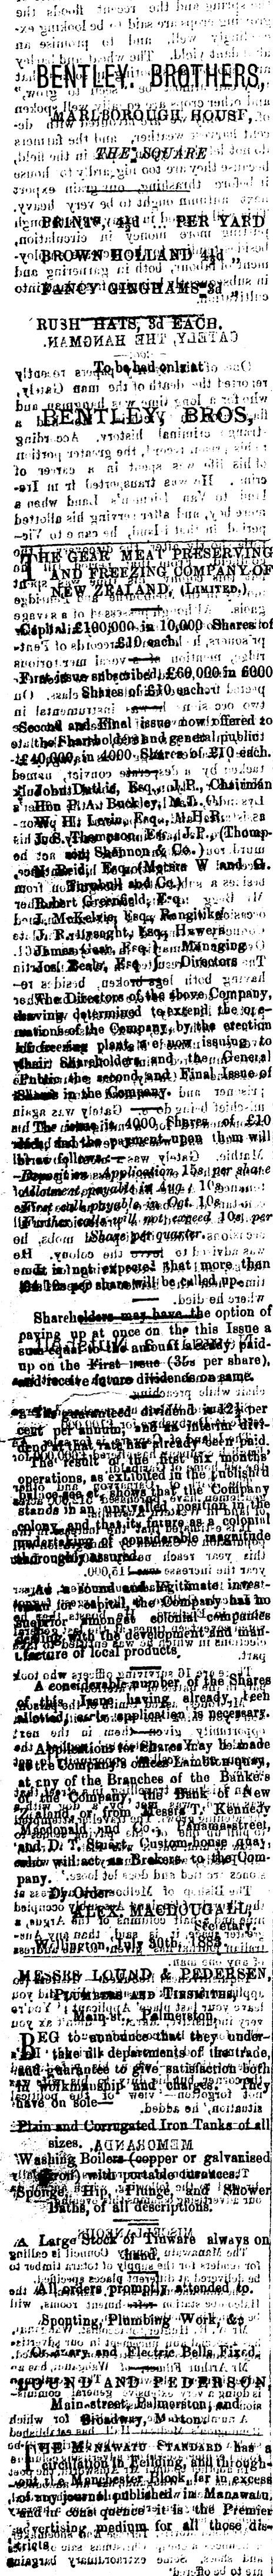 BENTLEY BROTHERS,
MARLBOROUGH HOUSE,
THE SQUARE
PRINTS, 4½d ... PER YARD
BROWN HOLLAND 4½d „
FANCY GINGHAMS 3d „
RUSH HATS, 3d EACH.
To be had only at
BENTLEY, BROS,
THE GEAR MEAT PRESERVING
AND FREEZING COMPANY OF
NEW ZEALAND, (LIMITED,)
Capital £100,000 in 10,000 Shares of
£10 each.
First issue subscribed, £60,000 in 6000
Shares of £10 each
Second and Final issue now offered to
the Shareholders and general public
£40,000, in 4000 Shares of £10 each.
John Duthie, Esq., J.P., Chairman
Hon P. A. Buckley, M.L.C.
W. H. Levin, Esq., M.H.R.
J. S. Thompson, Esq., J.P., (Thomp-
son, Shannon & Co.)
N. Reid, Esq. (Messrs W and G.
Turnbull and Co.)
Robert Greenfield, Esq.
J. McKelvie, Esq., Rangitikei
J. R. Lysaght, Esq., Hawera
James Gear, Esq } Managing
Jos. Beale, Esq } Directors
The Directors of the above Company,
having determined to extend the ope-
rations of the Company, by the erection
of freezing plant, are now issuing to
their Shareholders and the General
Public the second and Final Issue of
Shares in the Company.
The issue is 4000 Shares of £10
each, and the payment upon them will
be as follows:—
Deposit on Application 15s per share
Allotment payable in Aug., 10s
First call payable in Oct. 10s
Further calls will not exceed 10s. per
Share per quarter.
It is not expected that more than
per share will be called up.
Shareholders may have the option of
paying up at once on the this Issue a
sum equal to the amount already paid-
up on the First issue (35s per share),
and receive future dividends on same.
The guaranteed dividend is 12½ per
cent per annum, and an interim divi-
dend at that rate has already been paid.
The result of the first six months'
operations, as exhibited in the published
balance sheet, show that the Company
stands in an unrivalled position in the
colony, and that its future as a colonial
undertaking of considerable magnitude
is thoroughly assured.
As a sound and legitimate invest-
ment for capital, the Company has no
superior amongst colonial companies
dealing with the development and man-
ufacture of local products.
A considerable number of the Shares
of this Issue having already been
allotted, early application is necessary.
Applications for Shares may be made
at the Company's offices Lambton quay,
at any of the Branches of the Bankers
of the Company, the Bank of New
Zealand, or from Messrs T. Kennedy
Macdonald and Co., Panama-street,
and D. T. Stuart, Custom house quay
who will act as Brokers to the Com-
pany.
By Order
ALEX MACDOUGALL,
Secretary.
Wellington, July 30th, 1883.
MESSRS LOUND & PEDERSEN,
PLUMBERS AND TINSMITHS,
Main-st., Palmerston.
BEG to announce that they under-
take all departments of the trade,
and guarantee to give satisfaction both
in workmanship and charges. They
have on sole—
Plain and Corrugated Iron Tanks of all
sizes.
Washing Boilers (copper or galvanised
iron) with portable furnaces.
Sponge, Hip, Plunge and Shower
Baths, of all descriptions.
A Large Stock of Tinware always on
hand.
All orders promptly attended to.
Spouting, Plumbing Work, &c
Ordinary and Electric Bells Fixed.
LOUND AND PEDERSON,
Main-street, Palmerston, and
Broadway, Marton.
THE MANAWATU STANDARD has a
circulation in Feilding, and through-
out the Manchester Block, far in excess
of any journal published in Manawatu,
and in consequence it is the Premier
advertising medium for all those dis-
tricts